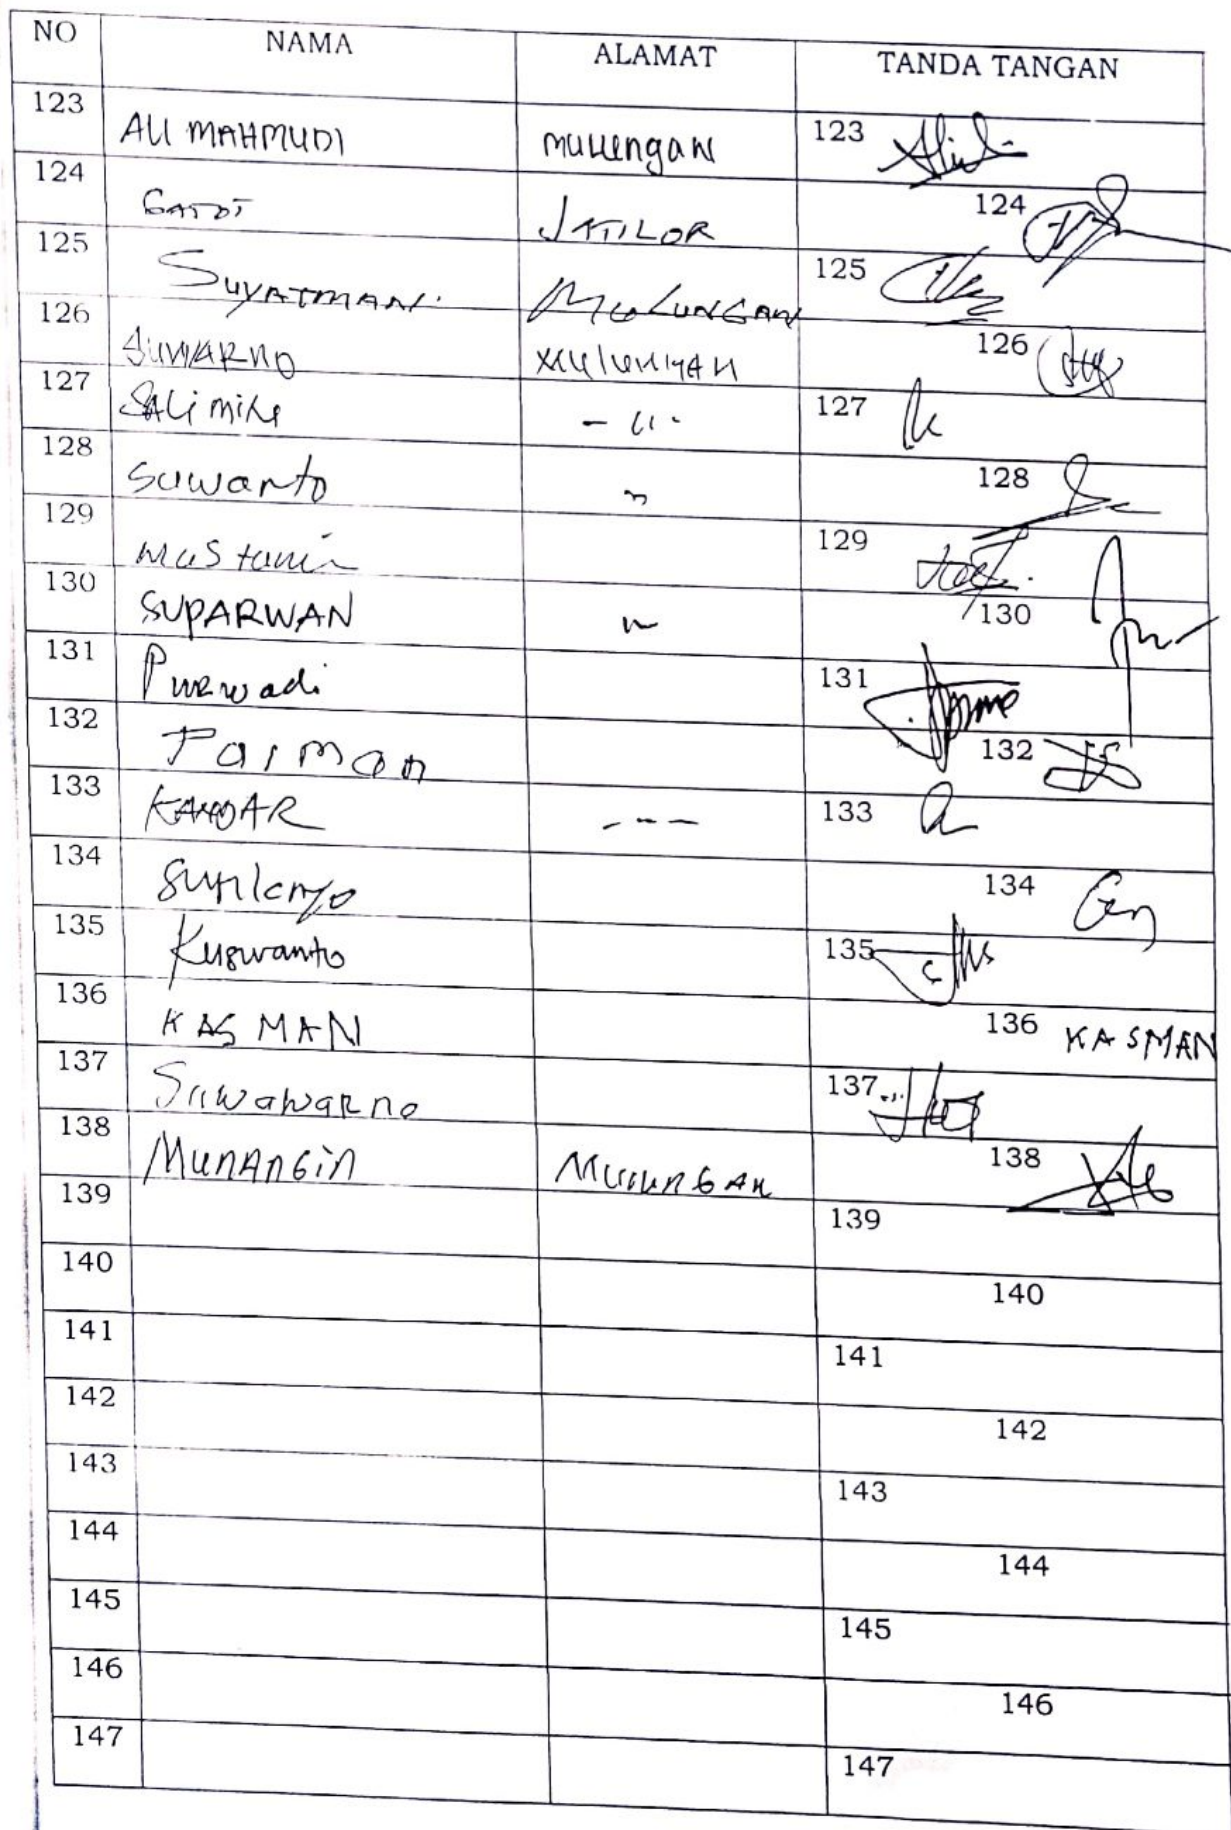 NO NAMA ALAMAT TANDA TANGAN
123 ALI MAHMUDI mulungan 123
124 GATOT JATILOR 124
125 SUYATMAN MULUNGAN 125
126 SUWARNO mulungan 126
127 SALimin - 11 - 127
128 Suwanto " 128
129 mustamin 129
130 SUPARWAN " 130
131 Purwadi 131
132 Paiman 132
133 KANDAR --- 133
134 134
135 Kuswanto 135
136 KASMAN 136 KASMAN
137 Suwawarno 137
138 MunAnGin MuLunGAn 138
139 139
140 140
141 141
142 142
143 143
144 144
145 145
146 146
147 147